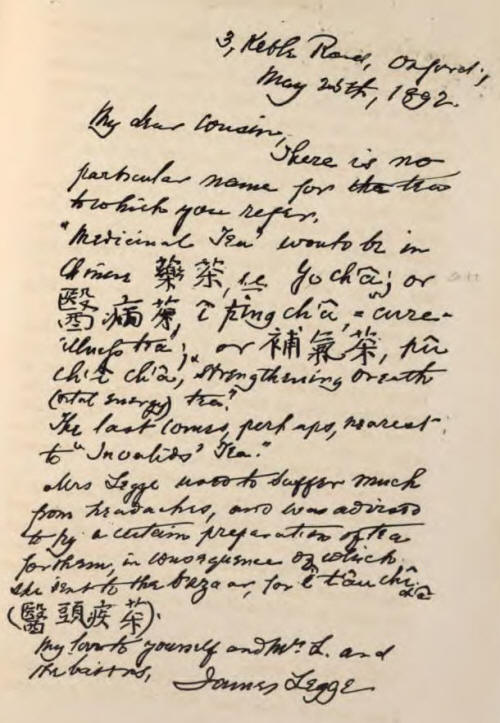 3, Keble Road, Oxford,
May 25th, 1892.
My dear Cousin,
There is no
particular name for the tea
to which you refer.
"Medicinal Tea" would be in
Chinese 藥茶, i.e. Yo ch'â; or
醫病茶, î ping ch'â, = cure-
illness tea; or 補氣茶, pû
ch'î ch'â, strengthening breath
(vital energy) tea."
The last comes, perhaps, nearest
to "Invalids' Tea."
Mrs Legge used to suffer much
from headaches, and was advised
to try a certain preparation of tea
for them, in consequence of which
she sent to the bazaar, for î t'âu ch'â
(醫頭疾茶).
My love to yourself and Mrs L. and
the bairns,
James Legge